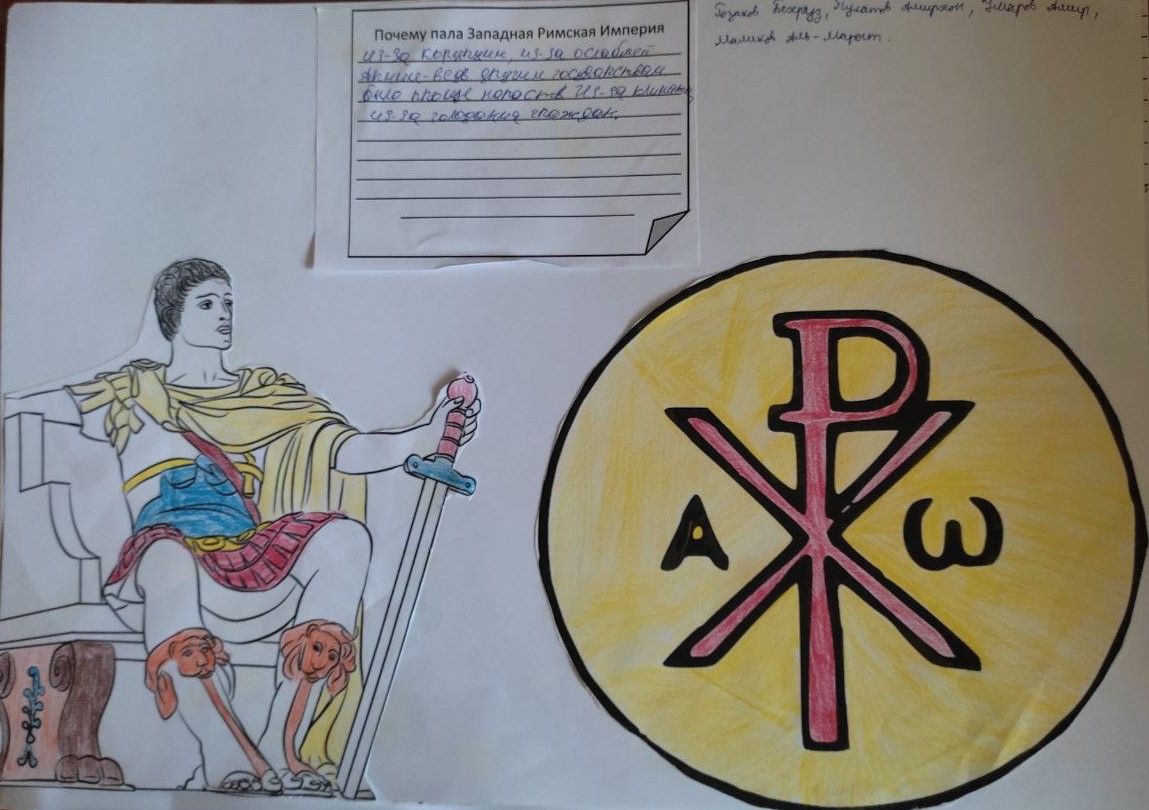 Почему пала Западная Римская Империя
из-за корупции, из-за ослаблей
Армие-ведь другим государствам
было проще напасть из-за климата,
из-за голодания граждан.
Бехруз, Пулатов Амирхон, Умаров Амир,
Маликов Аль-
А
ω